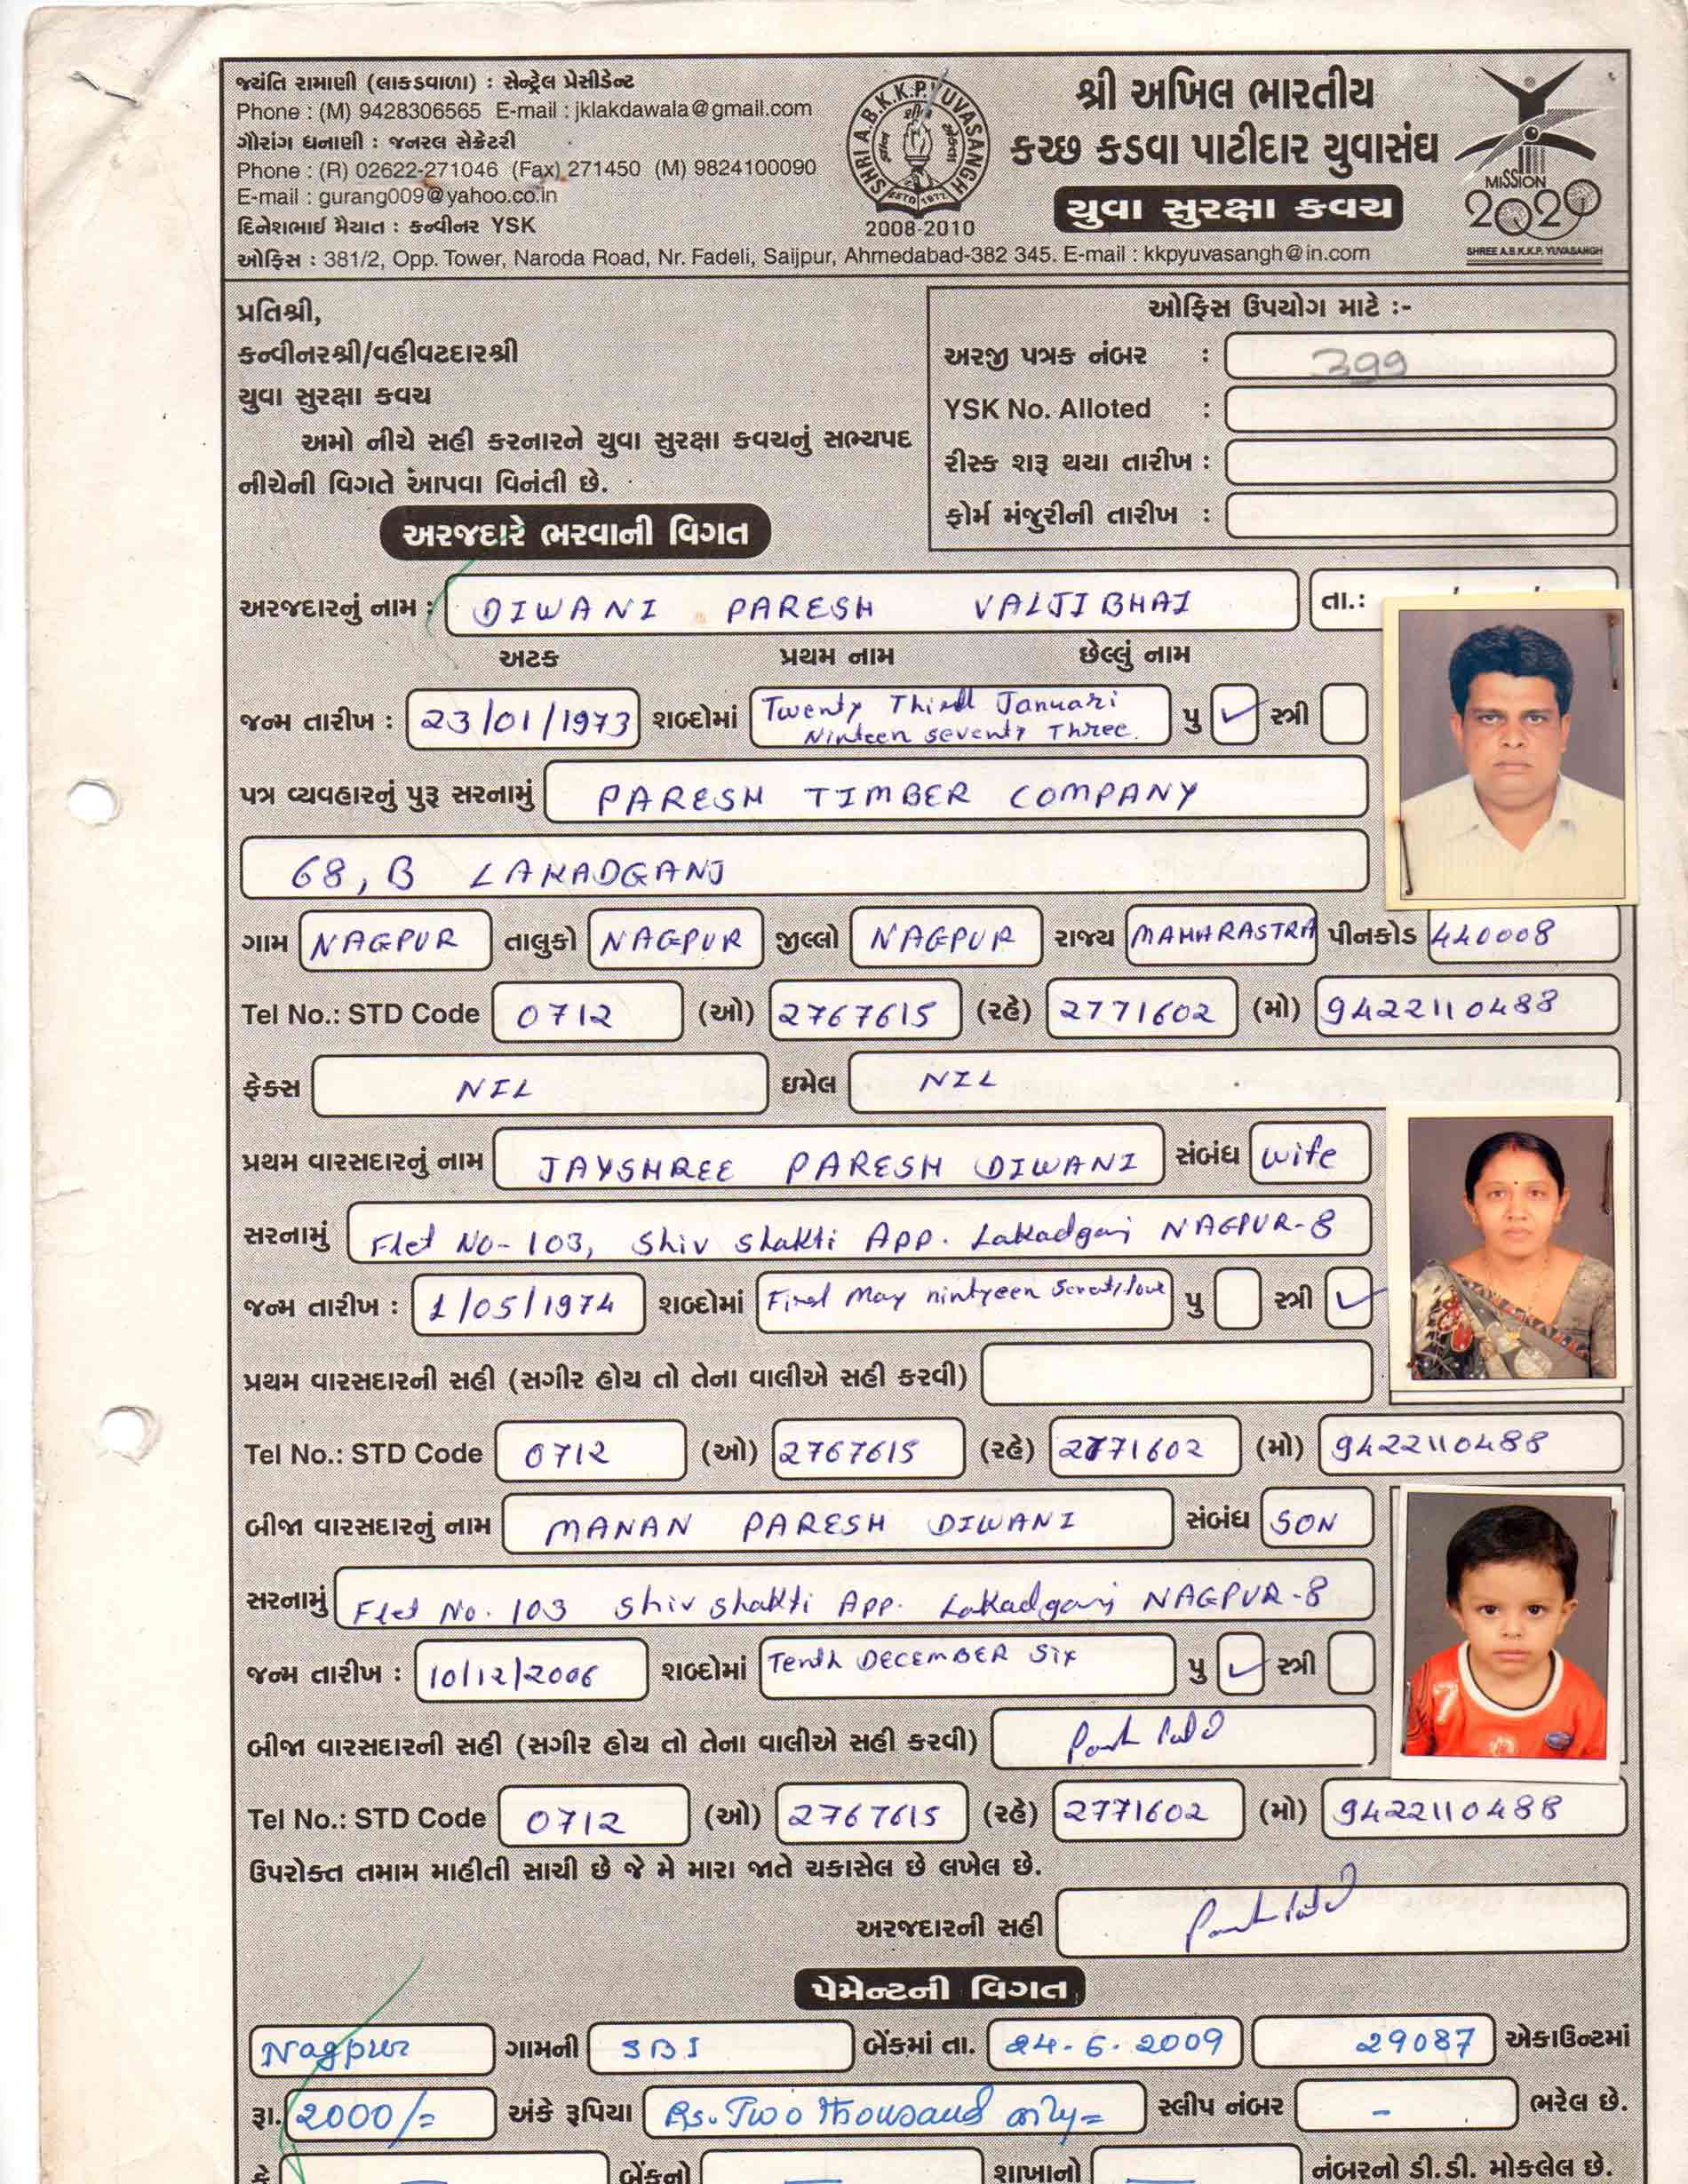 જયંતિ રામાણી (લાકડાવાળા) : સેન્ટ્રેલ પ્રેસીડેન્ટ
Phone : (M) 9428306565 E-mail : jklakdawala@gmail.com
ગૌરાંગ ધનાણી : જનરલ સેક્રેટરી
Phone : (R) 02622-271046 (Fax) 271450 (M) 9824100090
E-mail : gurang009@yahoo.co.in
દિનેશભાઈ મૈયાત : કન્વીનર YSK
SHRI A.B.K.K.P. YUVASANGH
ESTD 1977
2008-2010
શ્રી અખિલ ભારતીય
કચ્છ કડવા પાટીદાર યુવાસંઘ
યુવા સુરક્ષા કવચ
MISSION
2020
SHREE A.B.K.K.P. YUVASANGH
ઓફિસ : 381/2, Opp. Tower, Naroda Road, Nr. Fadeli, Saijpur, Ahmedabad-382 345. E-mail : kkpyuvasangh@in.com
પ્રતિશ્રી,
કન્વીનરશ્રી/વહીવટદારશ્રી
યુવા સુરક્ષા કવચ
અમો નીચે સહી કરનારને યુવા સુરક્ષા કવચનું સભ્યપદ
નીચેની વિગતે આપવા વિનંતી છે.
ઓફિસ ઉપયોગ માટે :-
અરજી પત્રક નંબર : 399
YSK No. Alloted :
રીસ્ક શરૂ થયા તારીખ :
ફોર્મ મંજુરીની તારીખ :
અરજદારે ભરવાની વિગત
અરજદારનું નામ : DIWANI PARESH VALJIBHAI તા.:
અટક પ્રથમ નામ છેલ્લું નામ
જન્મ તારીખ : 23/01/1973 શબ્દોમાં Twenty Third Januari Ninteen seventy Three. પુ ✓ સ્ત્રી
પત્ર વ્યવહારનું પુરૂ સરનામું PARESH TIMBER COMPANY
68, B LAKADGANJ
ગામ NAGPUR તાલુકો NAGPUR જીલ્લો NAGPUR રાજ્ય MAHARASTRA પીનકોડ 440008
Tel No.: STD Code 0712 (ઓ) 2767615 (રહે) 2771602 (મો) 9422110488
ફેક્સ NIL ઇમેલ NIL
પ્રથમ વારસદારનું નામ JAYSHREE PARESH DIWANI સંબંધ wife
સરનામું Flet No- 103, Shiv Shakti App. Lakadganj NAGPUR-8
જન્મ તારીખ : 1/05/1974 શબ્દોમાં First May nintyeen પુ સ્ત્રી ✓
પ્રથમ વારસદારની સહી (સગીર હોય તો તેના વાલીએ સહી કરવી)
Tel No.: STD Code 0712 (ઓ) 2767615 (રહે) 2771602 (મો) 9422110488
બીજા વારસદારનું નામ MANAN PARESH DIWANI સંબંધ SON
સરનામું Flet No. 103 Shiv Shakti App. Lakadganj NAGPUR-8
જન્મ તારીખ : 10/12/2006 શબ્દોમાં Tenth DECEMBER Six પુ ✓ સ્ત્રી
બીજા વારસદારની સહી (સગીર હોય તો તેના વાલીએ સહી કરવી)
Tel No.: STD Code 0712 (ઓ) 2767615 (રહે) 2771602 (મો) 9422110488
ઉપરોક્ત તમામ માહીતી સાચી છે જે મે મારા જાતે ચકાસેલ છે લખેલ છે.
અરજદારની સહી
પેમેન્ટની વિગત
Nagpur ગામની SBI બેંકમાં તા. 24-6-2009 29087 એકાઉન્ટમાં
રૂા. 2000/= અંકે રૂપિયા Rs. Two thousand only= સ્લીપ નંબર - ભરેલ છે.
કે બેંકનો શાખાનો નંબરનો ડી.ડી. મોકલેલ છે.